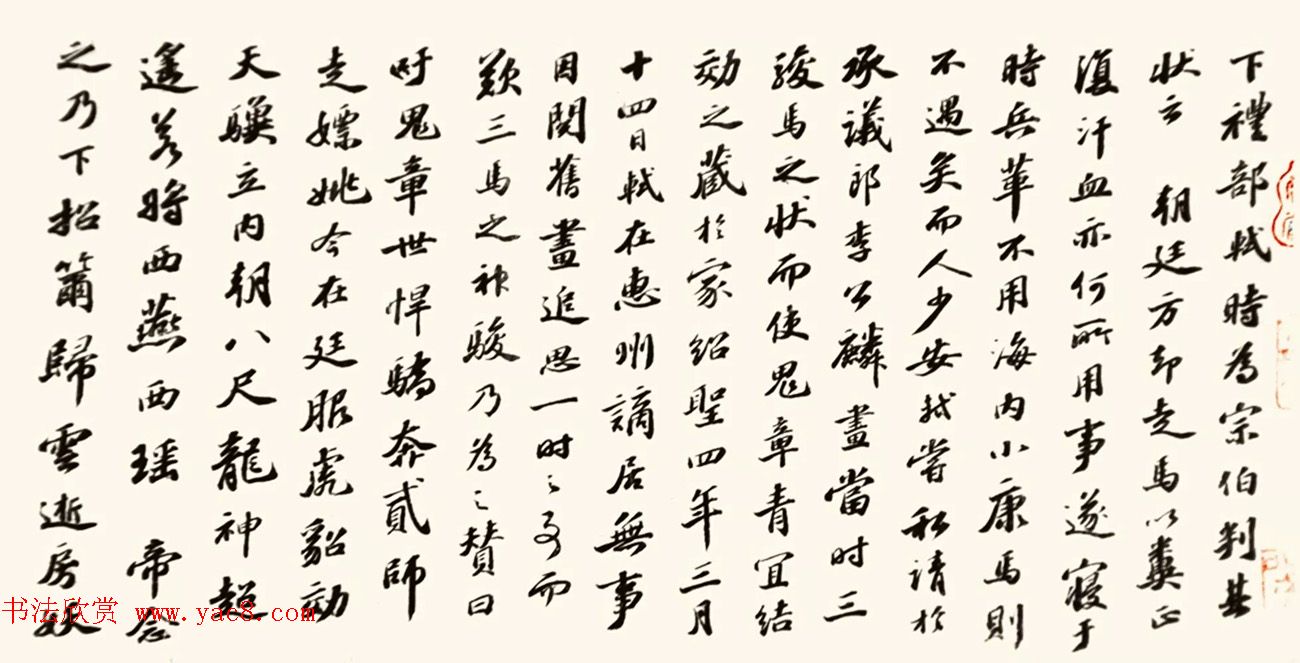 下禮部軾時為宗伯判其
狀云 朝廷方却走馬以糞正
復汗血亦何所用事遂寢于
時兵革不用海內小康馬則
不遇矣而人少安軾嘗私請於
承議郎李公麟畫當时三
駿馬之狀而使鬼章青宜結
効之藏於家紹聖四年三月
十四日軾在惠州謫居無事
因閱舊畫追思一时之事而
歎三馬之神駿乃為之贊曰
吁鬼章世悍驕奔貳師
走嫖姚今在廷服虎貂効
天驥立內朝八尺龍神超
遥若將西燕西瑶 帝念
之乃下招籋歸雲逝房妖
书法欣赏 www.yac8.com